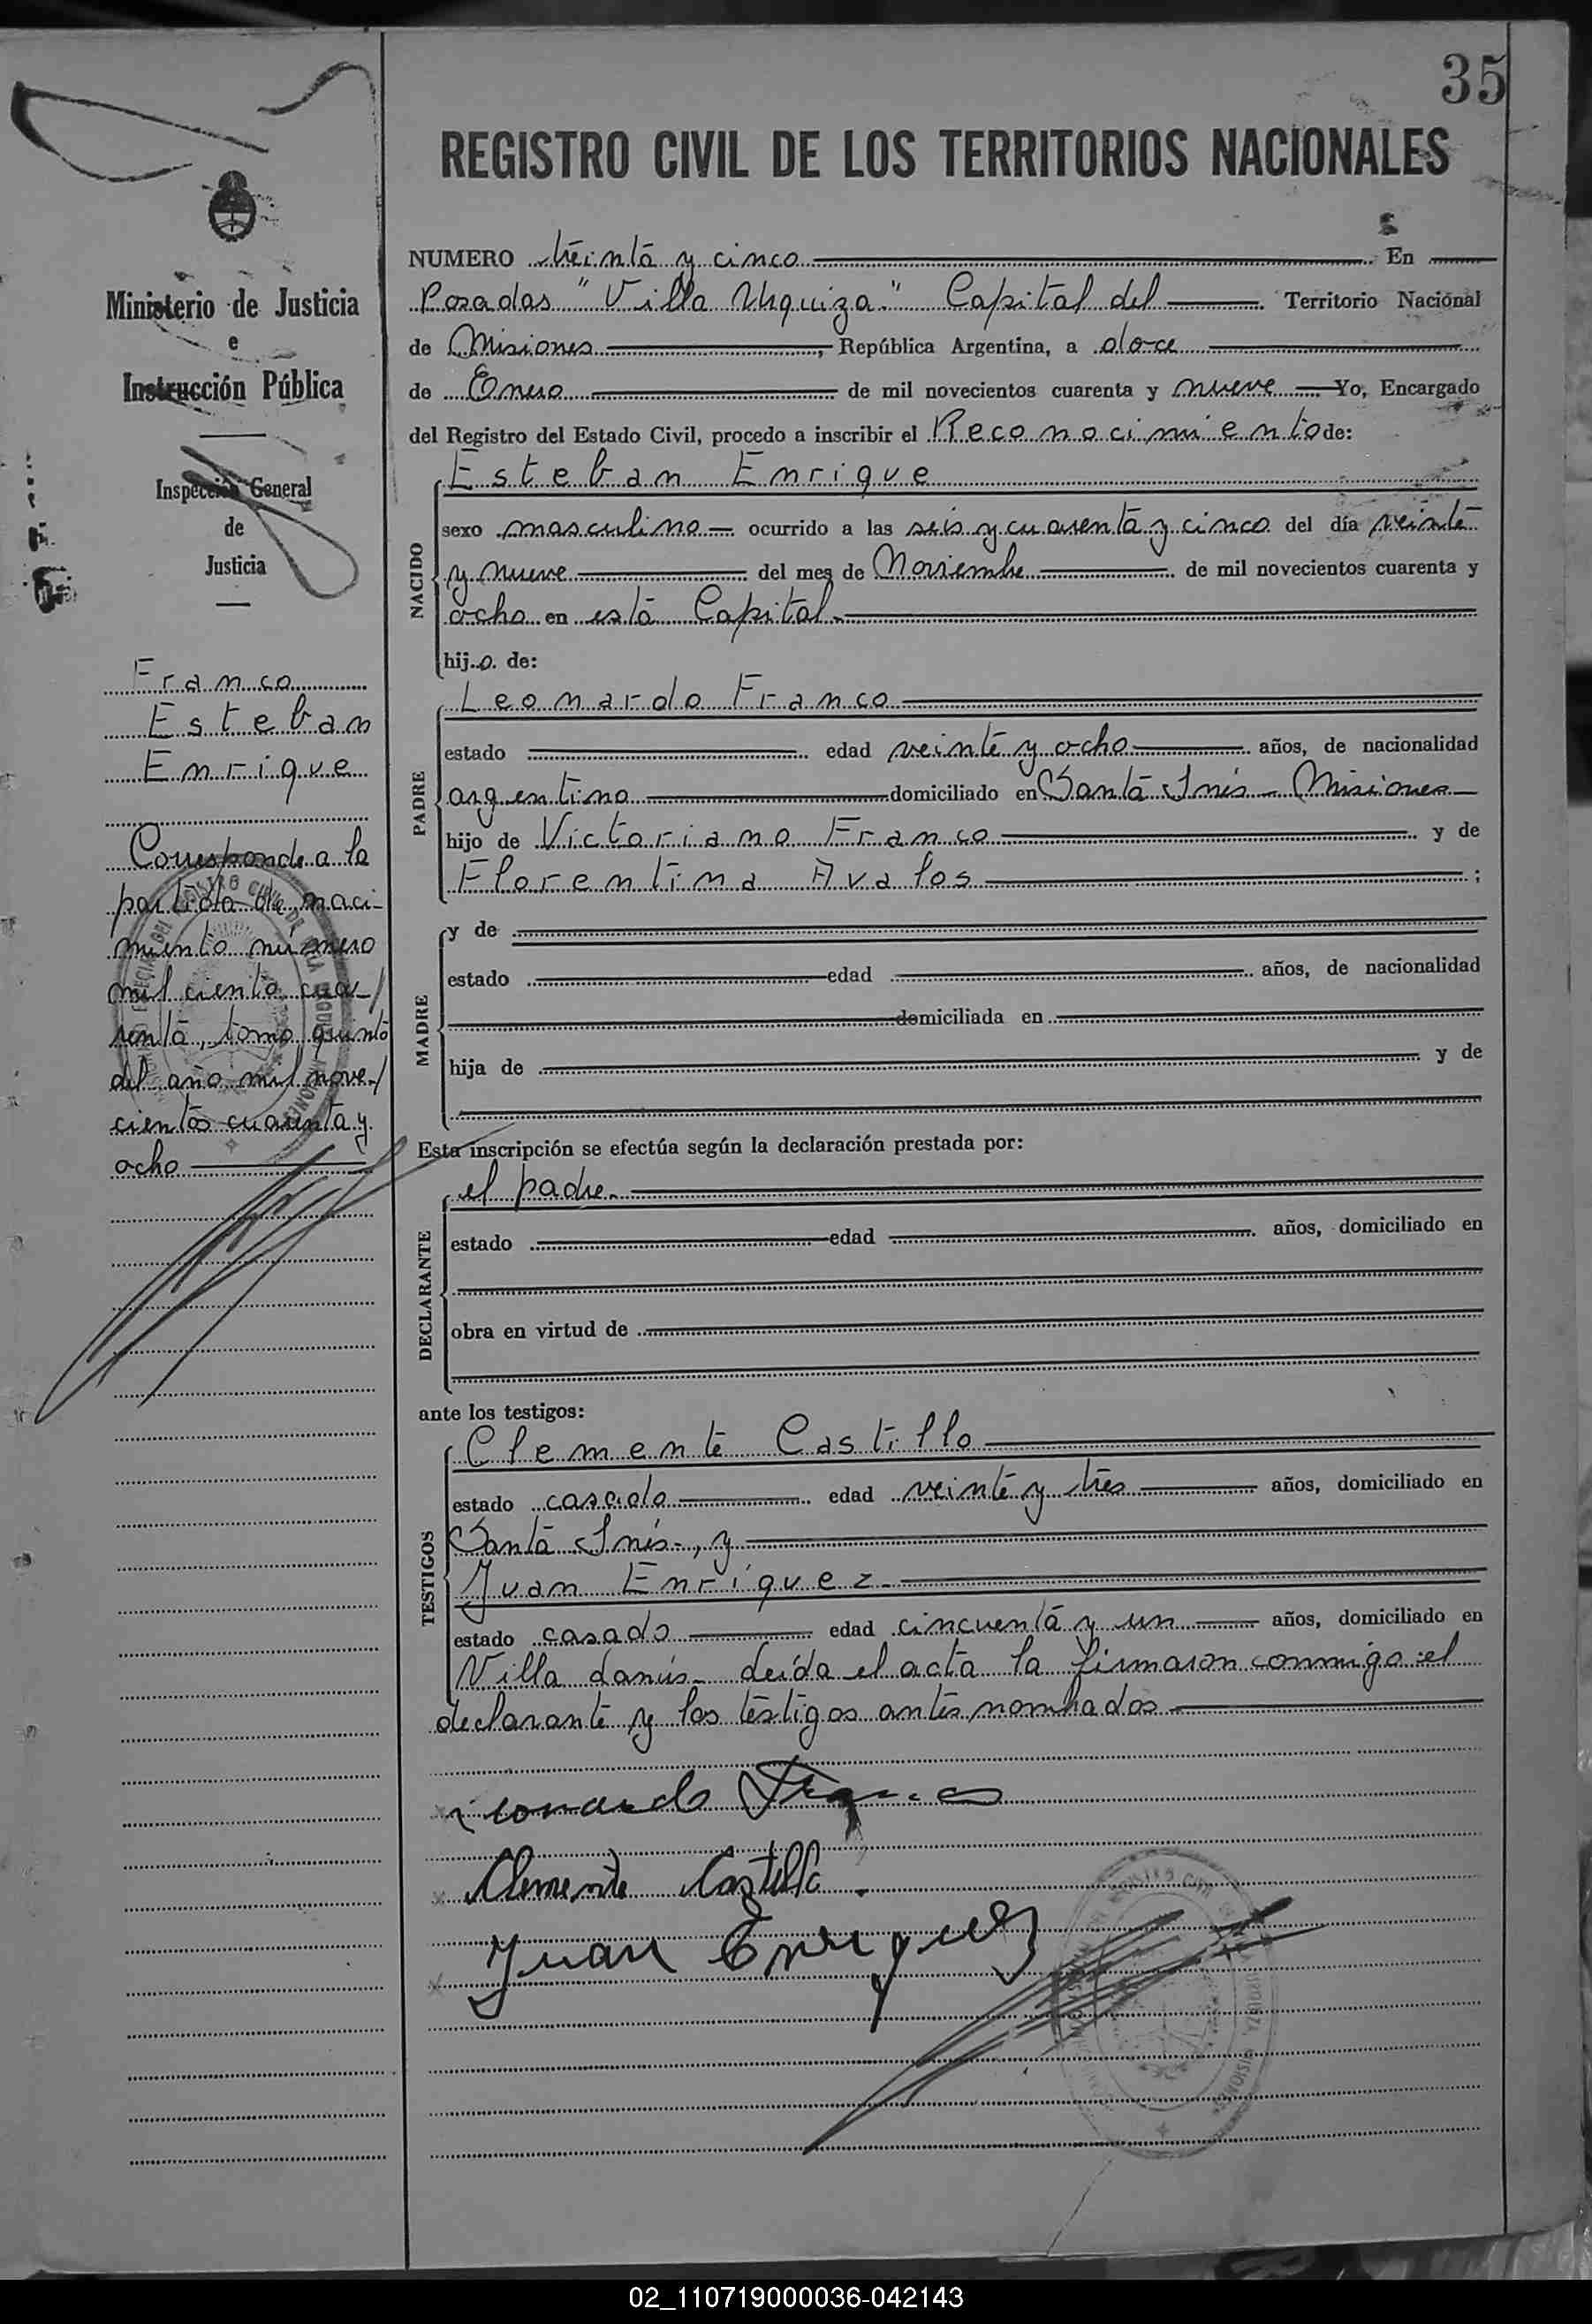 35
REGISTRO CIVIL DE LOS TERRITORIOS NACIONALES
Ministerio de Justicia
e
Instrucción Pública
Inspección General
de
Justicia
Franco
Esteban
Enrique
Corresponde a la
partida de naci-
miento número
mil ciento cua-/
renta, tomo quinto
del año mil nove-/
cientos cuarenta y
ocho
NUMERO treinta y cinco En
Posadas "Villa Urquiza" Capital del Territorio Nacional
de Misiones, República Argentina, a doce
de Enero de mil novecientos cuarenta y nueve Yo, Encargado
del Registro del Estado Civil, procedo a inscribir el Reconocimiento de:
NACIDO
Esteban Enrique
sexo masculino ocurrido a las seis y cuarenta y cinco del día veinte
y nueve del mes de Noviembre de mil novecientos cuarenta y
ocho en esta Capital.
hijo de:
PADRE
Leonardo Franco
estado edad veinte y ocho años, de nacionalidad
argentino domiciliado en Santa Inés - Misiones
hijo de Victoriano Franco y de
Florentina Avalos ;
MADRE
y de
estado edad años, de nacionalidad
domiciliada en
hija de y de
Esta inscripción se efectúa según la declaración prestada por:
DECLARANTE
el padre.
estado edad años, domiciliado en
obra en virtud de
ante los testigos:
TESTIGOS
Clemente Castillo
estado casado edad veinte y tres años, domiciliado en
Santa Inés-, y
Juan Enríquez
estado casado edad cincuenta y un años, domiciliado en
Villa Lanús. Leída el acta la firmaron conmigo el
declarante y los testigos antes nombrados
Leonardo Franco
Clemente Castillo
Juan Enriquez
02_110719000036-042143